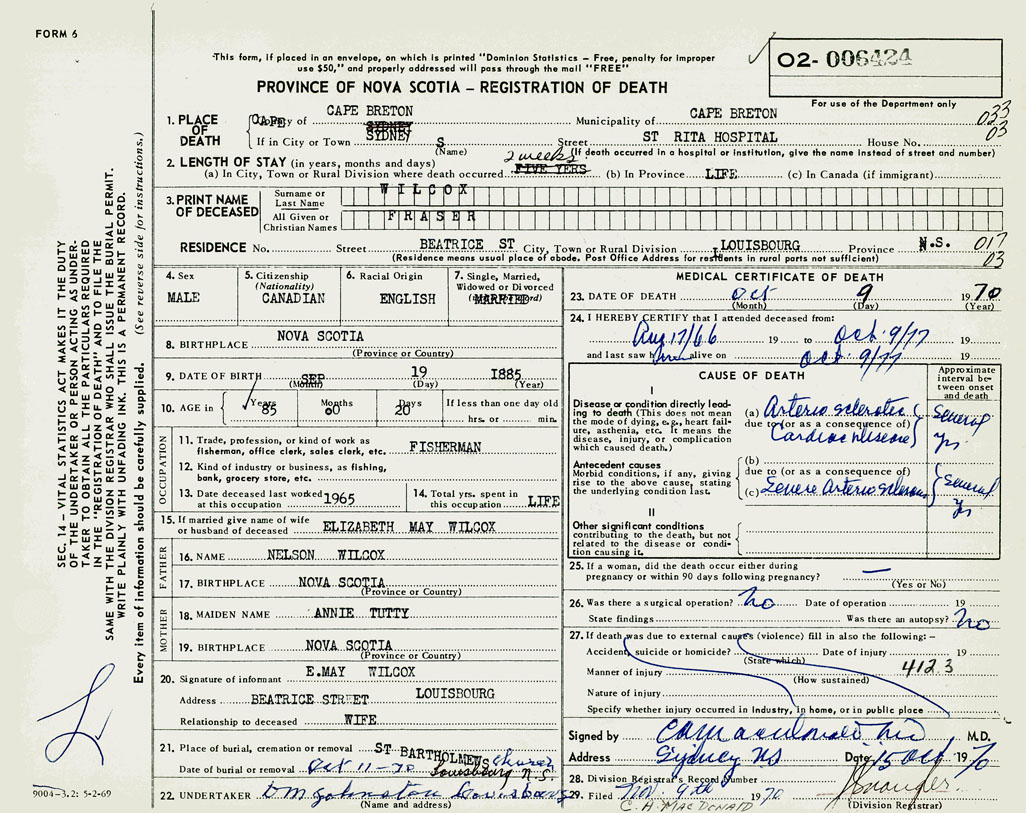 FORM 6
This form, if placed in an envelope, on which is printed "Dominion Statistics – Free, penalty for improper
use $50," and properly addressed will pass through the mail "FREE"
O2- 006424
PROVINCE OF NOVA SCOTIA – REGISTRATION OF DEATH
For use of the Department only
1. PLACE OF DEATH
County of CAPE BRETON Municipality of CAPE BRETON 033
If in City or Town SYDNEY S Street ST RITA HOSPITAL House No. 03
(Name) (If death occurred in a hospital or institution, give the name instead of street and number)
2. LENGTH OF STAY (in years, months and days) 2 weeks
(a) In City, Town or Rural Division where death occurred FIVE YERS (b) In Province LIFE (c) In Canada (if immigrant)
3. PRINT NAME OF DECEASED
Surname or Last Name WILCOX
All Given or Christian Names FRASER
RESIDENCE No. Street BEATRICE ST City, Town or Rural Division LOUISBOURG Province N.S. 017
(Residence means usual place of abode. Post Office Address for residents in rural parts not sufficient) 03
4. Sex
MALE
5. Citizenship
(Nationality)
CANADIAN
6. Racial Origin
ENGLISH
7. Single, Married,
Widowed or Divorced
MARRIED
8. BIRTHPLACE NOVA SCOTIA
(Province or Country)
9. DATE OF BIRTH SEP 19 1885
(Month) (Day) (Year)
10. AGE in Years 85 Months 60 Days 20 If less than one day old
hrs. or min.
OCCUPATION
11. Trade, profession, or kind of work as
fisherman, office clerk, sales clerk, etc. FISHERMAN
12. Kind of industry or business, as fishing,
bank, grocery store, etc.
13. Date deceased last worked
at this occupation 1965
14. Total yrs. spent in
this occupation LIFE
15. If married give name of wife
or husband of deceased ELIZABETH MAY WILCOX
FATHER
16. NAME NELSON WILCOX
17. BIRTHPLACE NOVA SCOTIA
(Province or Country)
MOTHER
18. MAIDEN NAME ANNIE TUTTY
19. BIRTHPLACE NOVA SCOTIA
(Province or Country)
20. Signature of informant E.MAY WILCOX
Address BEATRICE STREET LOUISBOURG
Relationship to deceased WIFE
21. Place of burial, cremation or removal ST BARTHOLMEWS Church
Date of burial or removal Oct 11-70 Louisbourg N.S.
22. UNDERTAKER DM Johnston Louisbourg
(Name and address)
MEDICAL CERTIFICATE OF DEATH
23. DATE OF DEATH Oct 9 1970
(Month) (Day) (Year)
24. I HEREBY CERTIFY that I attended deceased from:
Aug 17/66 19 to Oct. 9/77 19
and last saw him alive on Oct. 9/77 19
CAUSE OF DEATH
Approximate
interval be-
tween onset
and death
I
Disease or condition directly lead-
ing to death (This does not mean
the mode of dying, e.g., heart fail-
ure, asthenia, etc. It means the
disease, injury, or complication
which caused death.)
(a) Arterio sclerotic
due to (or as a consequence of)
Cardiac disease
Several
Yrs.
Antecedent causes
Morbid conditions, if any, giving
rise to the above cause, stating
the underlying condition last.
(b)
due to (or as a consequence of)
(c) Severe Arterio sclerosis
Several
Yrs
II
Other significant conditions
contributing to the death, but not
related to the disease or condi-
tion causing it.
25. If a woman, did the death occur either during
pregnancy or within 90 days following pregnancy? —
(Yes or No)
26. Was there a surgical operation? No Date of operation 19
State findings Was there an autopsy? No
27. If death was due to external causes (violence) fill in also the following:–
Accident, suicide or homicide? Date of injury 19
(State which)
Manner of injury 412.3
(How sustained)
Nature of injury
Specify whether injury occurred in industry, in home, or in public place
Signed by M.D.
Address Sydney NS Date 15 Oct 1970
28. Division Registrar's Record Number
29. Filed Nov. 9th 1970
C. A. MACDONALD (Division Registrar)
SEC. 14 – VITAL STATISTICS ACT MAKES IT THE DUTY
OF THE UNDERTAKER OR PERSON ACTING AS UNDER-
TAKER TO OBTAIN ALL THE PARTICULARS REQUIRED
IN THE "REGISTRATION OF DEATH" AND TO FILE THE
SAME WITH THE DIVISION REGISTRAR WHO SHALL ISSUE THE BURIAL PERMIT.
WRITE PLAINLY WITH UNFADING INK. THIS IS A PERMANENT RECORD.
Every item of information should be carefully supplied. (See reverse side for instructions.)
9004-3.2: 5-2-69